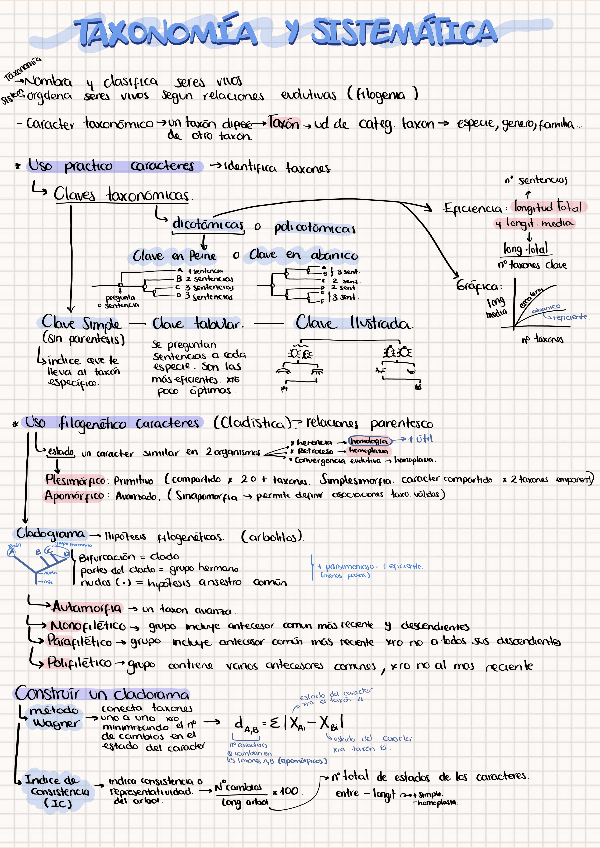 TAXONOMÍA Y SISTEMÁTICA
Taxonomía
→ Nombra y clasifica seres vivos
orgdena seres vivos según relaciones evolutivas (filogenia)
- Caracter taxonómico → un taxón difiere → Taxón → ud de categ. taxon → especie, genero, familia...
de otro taxón.
* Uso práctico caracteres → identifica taxones
Claves taxonómicas.
dicotómicas o policotómicas
Clave en Peine o Clave en abanico
A 1 sentencia
B 2 sentencias
C 3 sentencias
D 3 sentencias
pregunta
o sentencia
3 sent.
2 sent
2 sent
3 sent.
nº sentencias
Eficiencia: longitud total
y longit media
long. total
nº taxones clave
Gráfica:
long
media
abanico
eficiente.
nº taxones
Clave Simple — Clave tabular. — Clave Ilustrada.
(sin parentesis)
índice que te
lleva al taxón
específico.
Se preguntan
sentencias a cada
especie. Son las
más eficientes xro
poco óptimas
* Uso filogenético caracteres (Cladística) → relaciones parentesco
estado, un caracter similar en 2 organismos
* herencia → homología → + útil
* Retroceso → homoplasia
* Convergencia evolutiva → homoplasia.
Plesimórfico: Primitivo (compartido x 2 o + taxones. Simplesimorfia. caracter compartido x 2 taxones emparent)
Apomórfico: Avanzado. (Sinapomorfia → permite definir asociaciones taxo. válidas)
Cladograma → Hipótesis filogenéticas. (arbolitos).
Bifurcación = clado
partes del clado = grupo hermano
nudos (·) = hipótesis ancestro común
+ parsimonioso = + eficiente.
Automorfia → un taxon avanza.
Monofilético → grupo incluye antecesor comun más reciente y descendientes
Parafilético → grupo incluye antecesor común más reciente xro no a todos sus descendientes
Polifilético → grupo contiene varios antecesores comunes, xro no al mas reciente
Construir un cladorama
método
Wagner
conecta taxones
uno a uno xro
minimizando el nº
de cambios en el
estado del caracter
d A,B = Σ |X Ai − X Bi|
estado del caracter
xra el taxón A
estado del caracter
xra taxón B.
nº caracteres
q cambian en
los linajes A,B (apomórficos)
Indice de
Consistencia
(IC)
indica consistencia o
representatividad.
del arbol.
Nº cambios
long arbol
× 100
nº total de estados de los caracteres.
entre - longit → + simple.
- homoplasia.